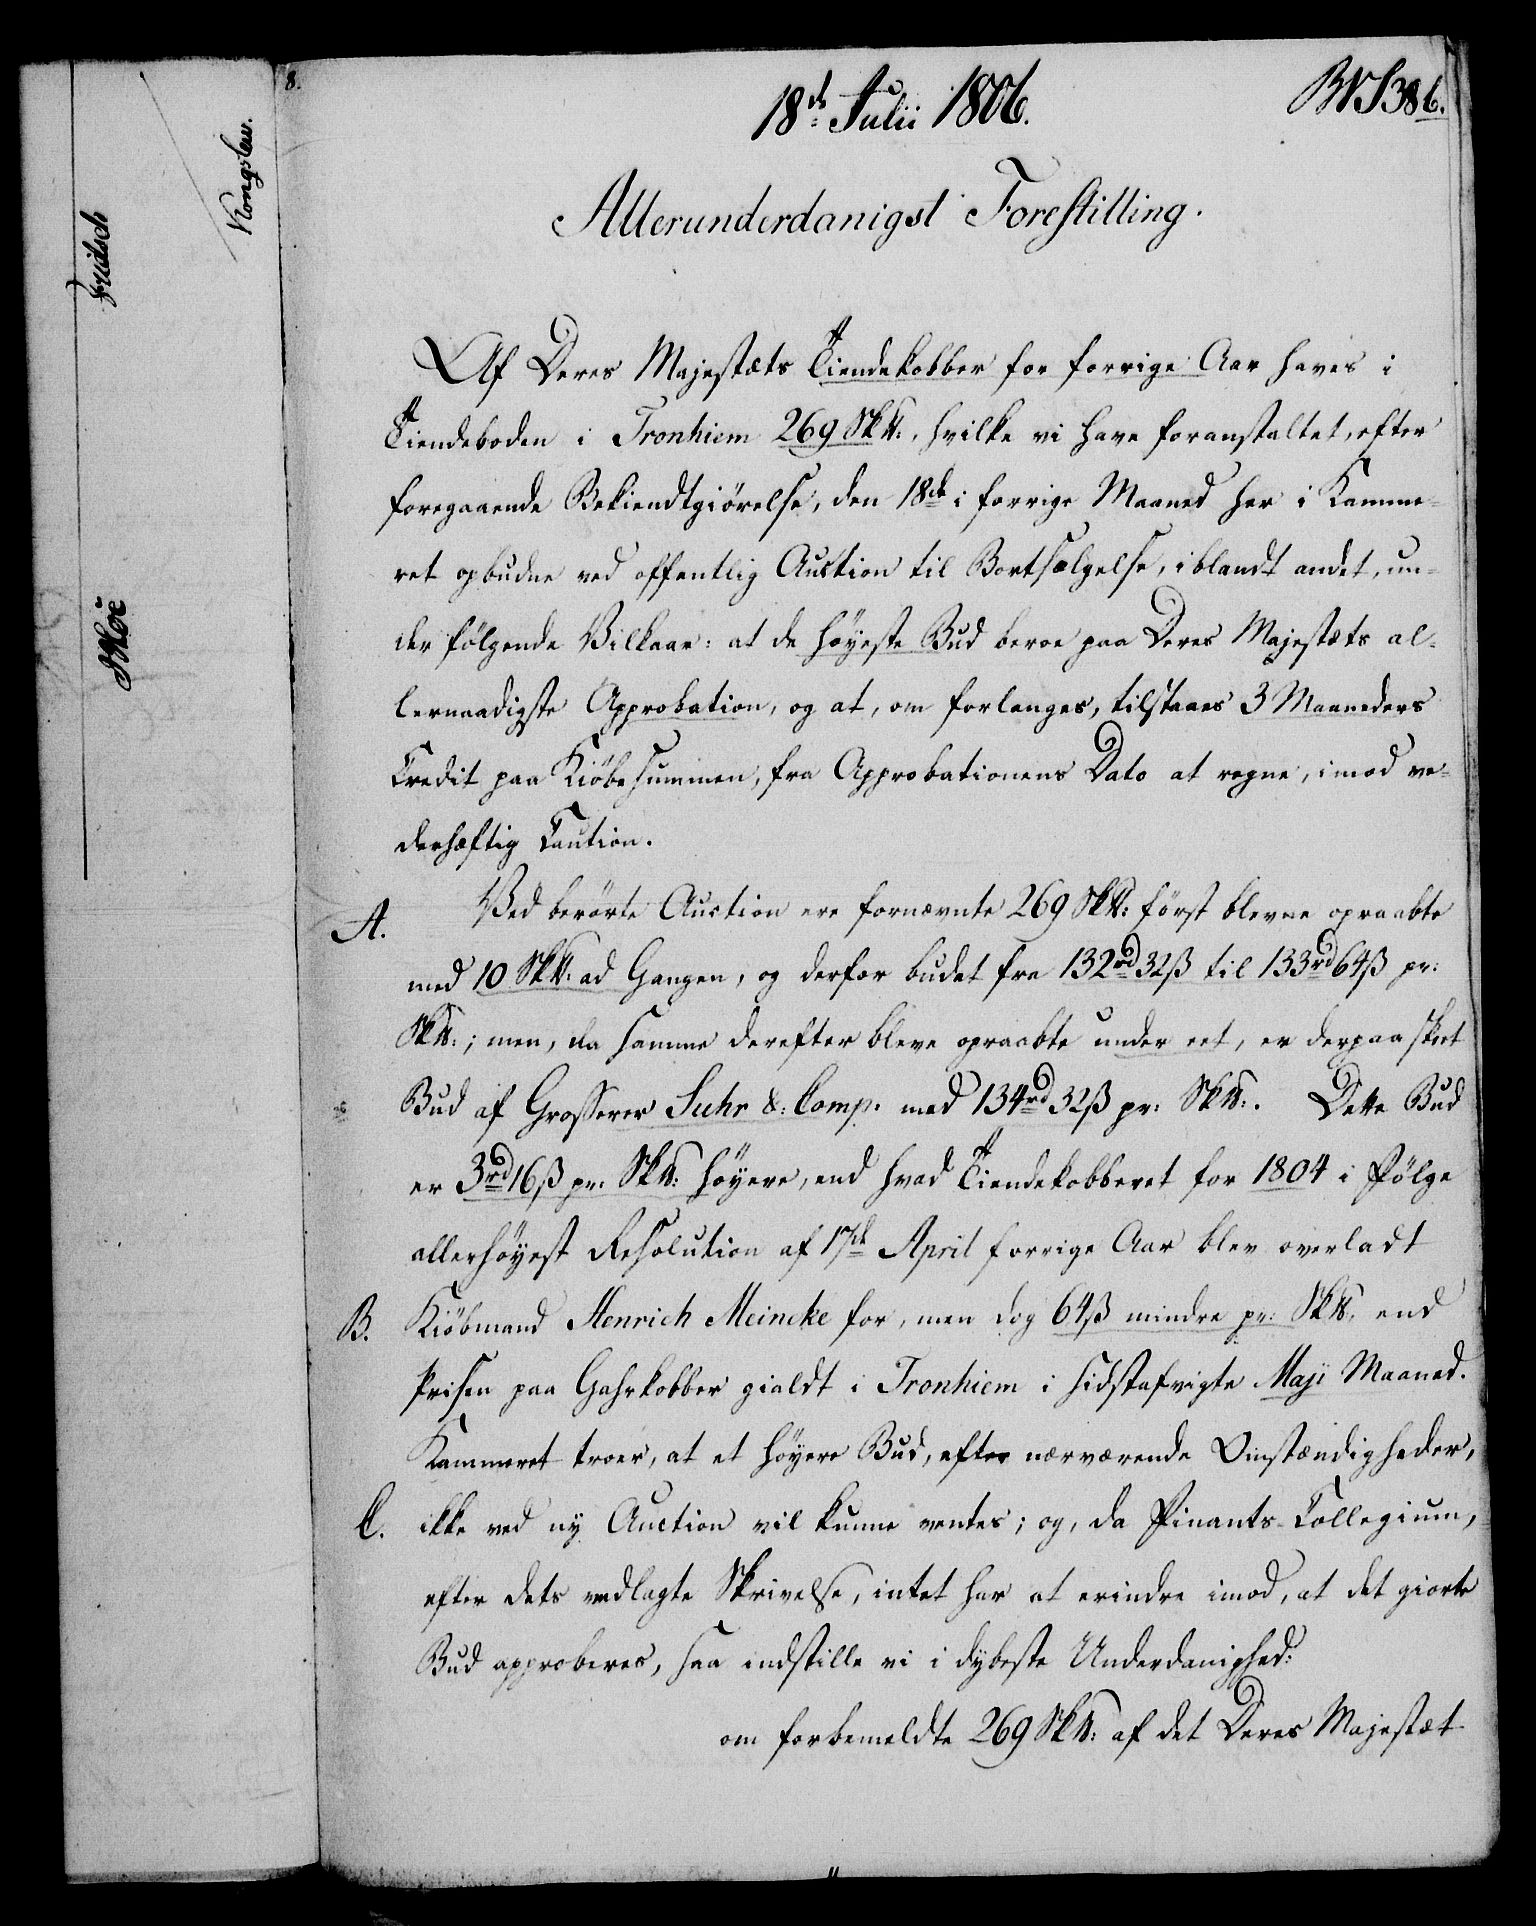 18de Julii 1806.
Allerunderdanigst Forestilling.
Af Deres Majestæts Tiendekobber for forrige Aar haves i
Tiendeboden i Tronhiem 269 Sk℔., hvilke vi have foranstaltet, efter
foregaaende Bekiendtgiörelse, den 18de i forrige Maaned her i Kamme-
ret opbudne ved offentlig Auktion til Bortsælgelse, iblandt andet, un-
der fölgende Vilkaar: at de höyeste Bud beroe paa Deres Majestæts al-
lernaadigste Approbation, og at, om forlanges, tilstaaes 3 Maaneders
Credit paa Kiöbesummen, fra Approbationens Dato at regne, imod ve-
derhæftig Caution.
A. Ved berörte Auction ere fornævnte 269 Sk℔: först blevne opraabte
med 10 Sk℔: ad Gangen, og derfor budet fra 132rd 32ß til 133rd 64ß pr:
Sk℔.; men, da samme derefter bleve opraabte under eet, er derpaa skeet
Bud af Grosserer Suhr &: Comp. med 134rd 32ß pr: Sk℔:. Dette Bud
er 3rd 16ß pr: Sk℔: höyere, end hvad Tiendekobberet for 1804 i Fölge
allerhöyest Resolution af 17de April forrige Aar blev overladt
B. Kiöbmand Henrich Meincke for, men dog 64ß mindre pr: Sk℔. end
Prisen paa Gahrkobber gialdt i Tronhiem i sidstafvigte Maji Maaned.
Kammeret troer, at et höyere Bud, efter nærværende Omstændigheder,
C. ikke ved ny Auction vil kunne ventes; og, da Finants-Collegium,
efter dets vedlagte Skrivelse, intet har at erindre imod, at det giorte
Bud approberes, saa indstille vi i dybeste Underdanighed:
om forbemeldte 269 Sk℔: af det Deres Majestæt
8.
Kongslew.
Fridsch